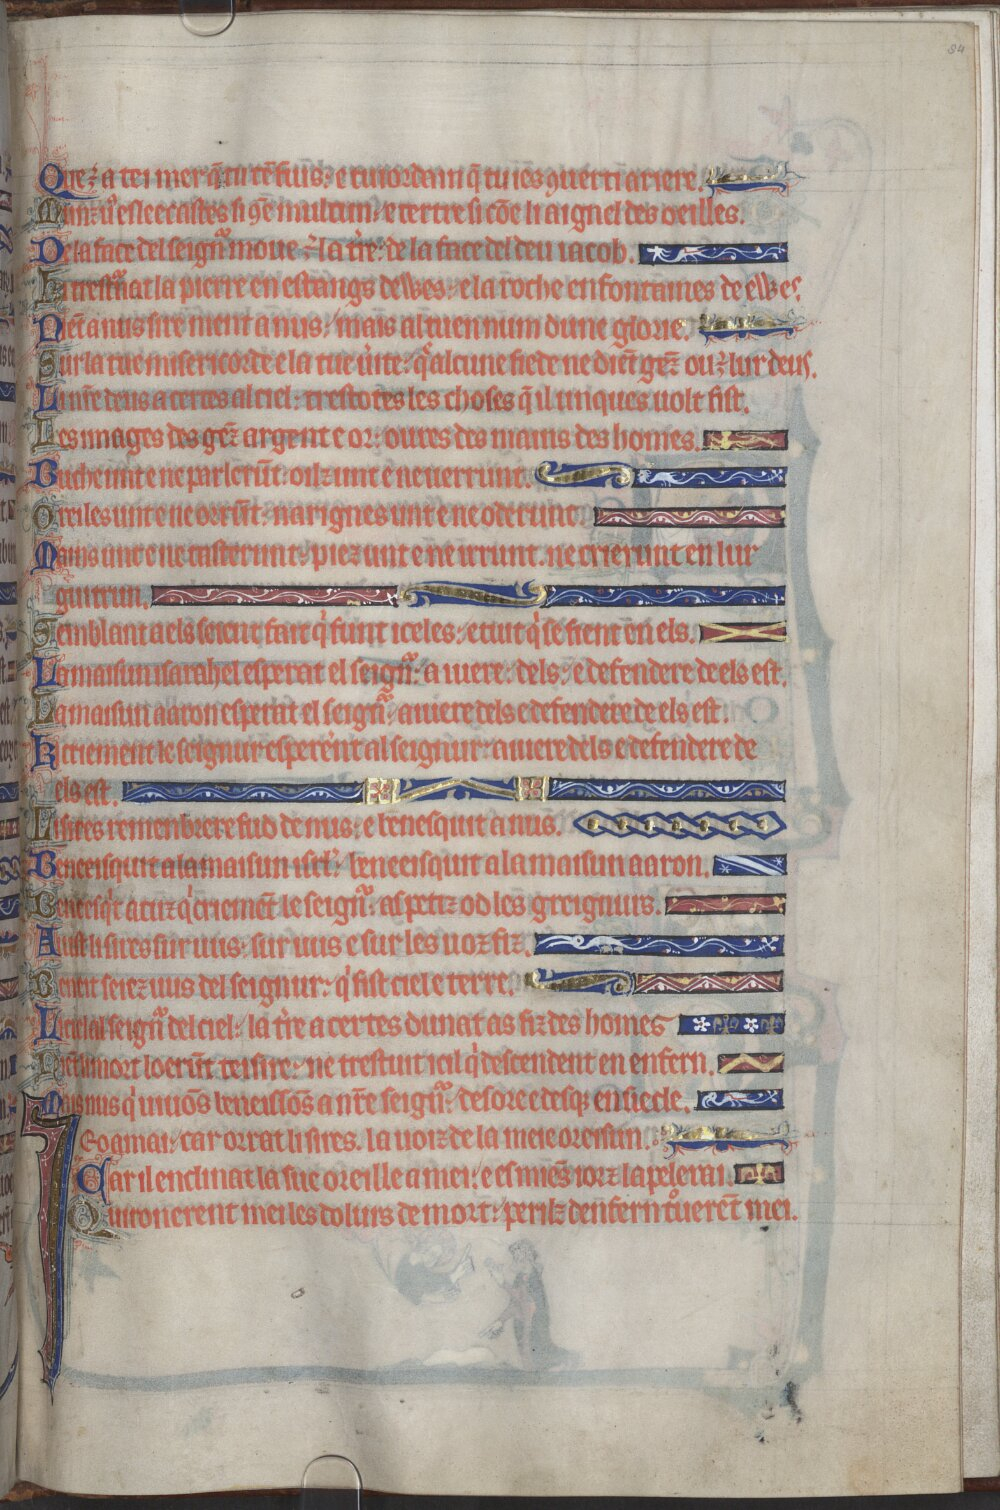 84
Que est a tei mer q̃ tu tẽ fuis: e tu iordam q̃ tu ies 9uerti ariere.
Munz u9 esleecastes si cũe multun: e tertre si cõe li aignel des oeilles.
De la face del seignr moue est la tr̃e: de la face del deu iacob.
Ki trestñat la pierre en estangs de ewes: e la roche en fontaines de ewes.
Nẽt a nus sire nient a nus: mais al tuen num dune glorie.
Sur la tue misericorde e la tue ũite: q̃ alcune fiede ne diẽt gẽz ou est lur deus.
Li nr̃e deus a certes al ciel: trestotes les choses q̃ il unques uolt fist.
Les images des gẽz argent e or: oures des mains des homes.
Buche unt e ne parlerũt: oilz unt e ne uerrunt.
Oreiles unt e ne oerũt: narignes unt e ne oderunt.
Mains unt e ne tasterunt: piez unt e ne irrunt. ne crierunt en lur
guitrun.
Semblant a els seient fait qi funt iceles: e tuit qi se fient en els.
La maisun israhel esperat el seignr: aiuere dels e defendere de els est.
La maisun aaron esperat el seignr: aiuere dels e defendere de els est.
Ki criement le seignur esperent al seignur: aiuere dels e defendere de
els est.
Li sires remenbrere fud de nus: e beneesquit a nus.
Beneesquit a la maisun isrl: beneesquit a la maisun aaron.
Beneesqit a tuz qi criemẽt le seignr: as petiz od les greignurs.
Aiust li sires sur uus: sur uus e sur les uoz fiz.
Beneit seiez uus del seignur: qi fist ciel e terre.
Li ciel al seignr del ciel: la tr̃e a certes dunat as fiz des homes
Nẽt li mort loerũt tei sire: ne trestuit icil qi descendent en enfern.
Mais nus qi uiuõs beneissõs a nr̃e seignr: de sore e desqe en siecle.
Ieo amai: car orrat li sires. la uoiz de la meie oreisun.
Car il enclinat la sue oreille a mei: e es miẽs iorz lapelerai.
Auironerent mei les dolurs de mort: perilz denfern tuerẽt mei.